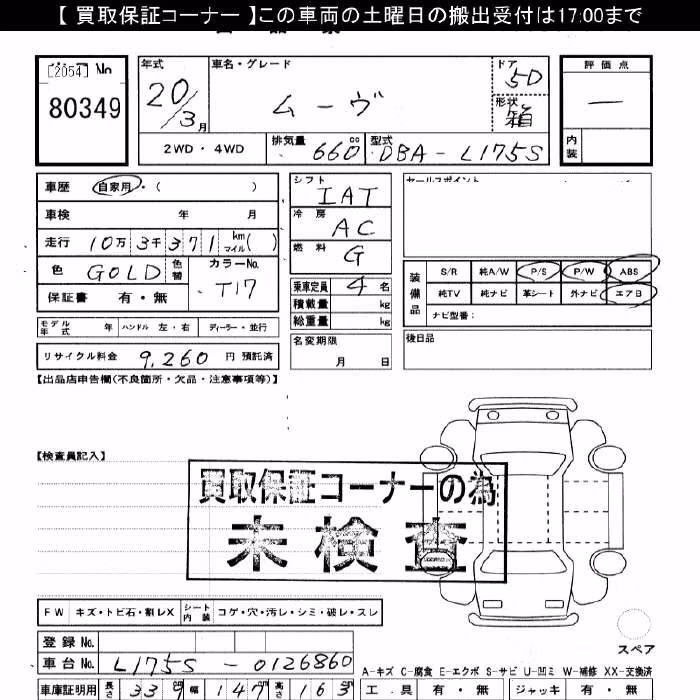 【 買取保証コーナー 】この車両の土曜日の搬出受付は17:00まで
[2054] No
80349
年式 20/3月
車名・グレード ムーヴ
ドア 5D
形状 箱
評価点 —
内装
2WD・4WD
排気量 660 cc
型式 DBA-L175S
車歴 自家用・( )
車検 年 月
走行 10万3千371 km マイル( )
色 GOLD 色替 カラーNo. T17
保証書 有・無
シフト IAT
冷房 AC
燃料 G
乗車定員 4 名
積載量 kg
総重量 kg
セールスポイント
装備品
S/R 純A/W P/S P/W ABS
純TV 純ナビ 革シート 外ナビ エアB
ナビ型番:
モデル年式 年 ハンドル 左・右 ディーラー・並行
リサイクル料金 9,260 円 預託済
名変期限 月 日
後日品
【出品店申告欄(不良箇所・欠品・注意事項等)】
【検査員記入】
買取保証コーナーの為
未検査
FW キズ・トビ石・割レX シート内装 コゲ・穴・汚レ・シミ・破レ・スレ
登録 No.
車台 No. L175S-0126860
スペア
A-キズ C-腐食 E-エクボ S-サビ U-凹ミ W-補修 XX-交換済
車庫証明用 長さ 339 幅 147 高さ 163
工具 有・無 ジャッキ 有・無